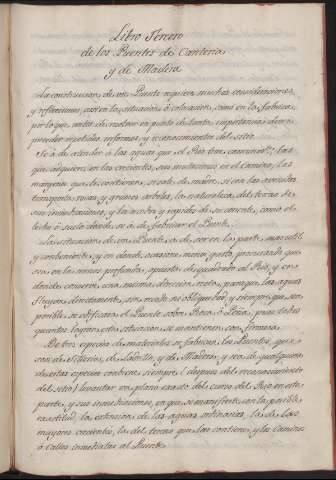 Libro Tercero
de los Puentes de Canteria
y de Madera
La construccion de un Puente requiere muchas consideraciones,
y reflexiones, assi en la situacion ò colocacion, como en la fabrica,
por lo que, antes de meterse en gasto de tanta importancia deven
preceder repetidos informes, y reconocimientos del sitio.
Se á de atender à las aguas que el Rio trae comunmte, las
que adquiere en las crecientes, sus mutaciones en el Camino, las
margenes que le contienen, si sale de madre, si con las avenidas
transporta ruias y gruesos arboles, la naturaleza del terreno de
sus inmediaciones, y la madre y rapidez de su corriente, como el
lecho ò suelo donde se à de fabricar el Puente.
La situacion de un Puente à de ser en la parte mas util
y conveniente, y en donde ocasione menor gasto, procurando que
sea en la menos profunda, opuesto de quadrado al Rio, y en
donde conserve una misma direccion recta, para que las aguas
fluyan directamente, sin recodo ni obliquidad, y siempre que sea
posible se edificara el Puente sobre Roca, ò Peña, pues todos
quantos logran esta situacion se mantienen con firmeza.
De tres especies de materiales se fabrican los Puentes, que
son de silleria, de Ladrillo, y de Madera, y sea de qualquiera
de estas especies conviene siempre (despues del reconocimiento
del sitio) levantar un plano exacto del curso del Rio en esta
parte, y sus inmediaciones, en que se manifieste con la posible
exactitud, la extension de las aguas ordinarias, la de las
mayores crecientes, la del terreno que las contiene, y los Caminos
ò Calles inmediatas al Puente